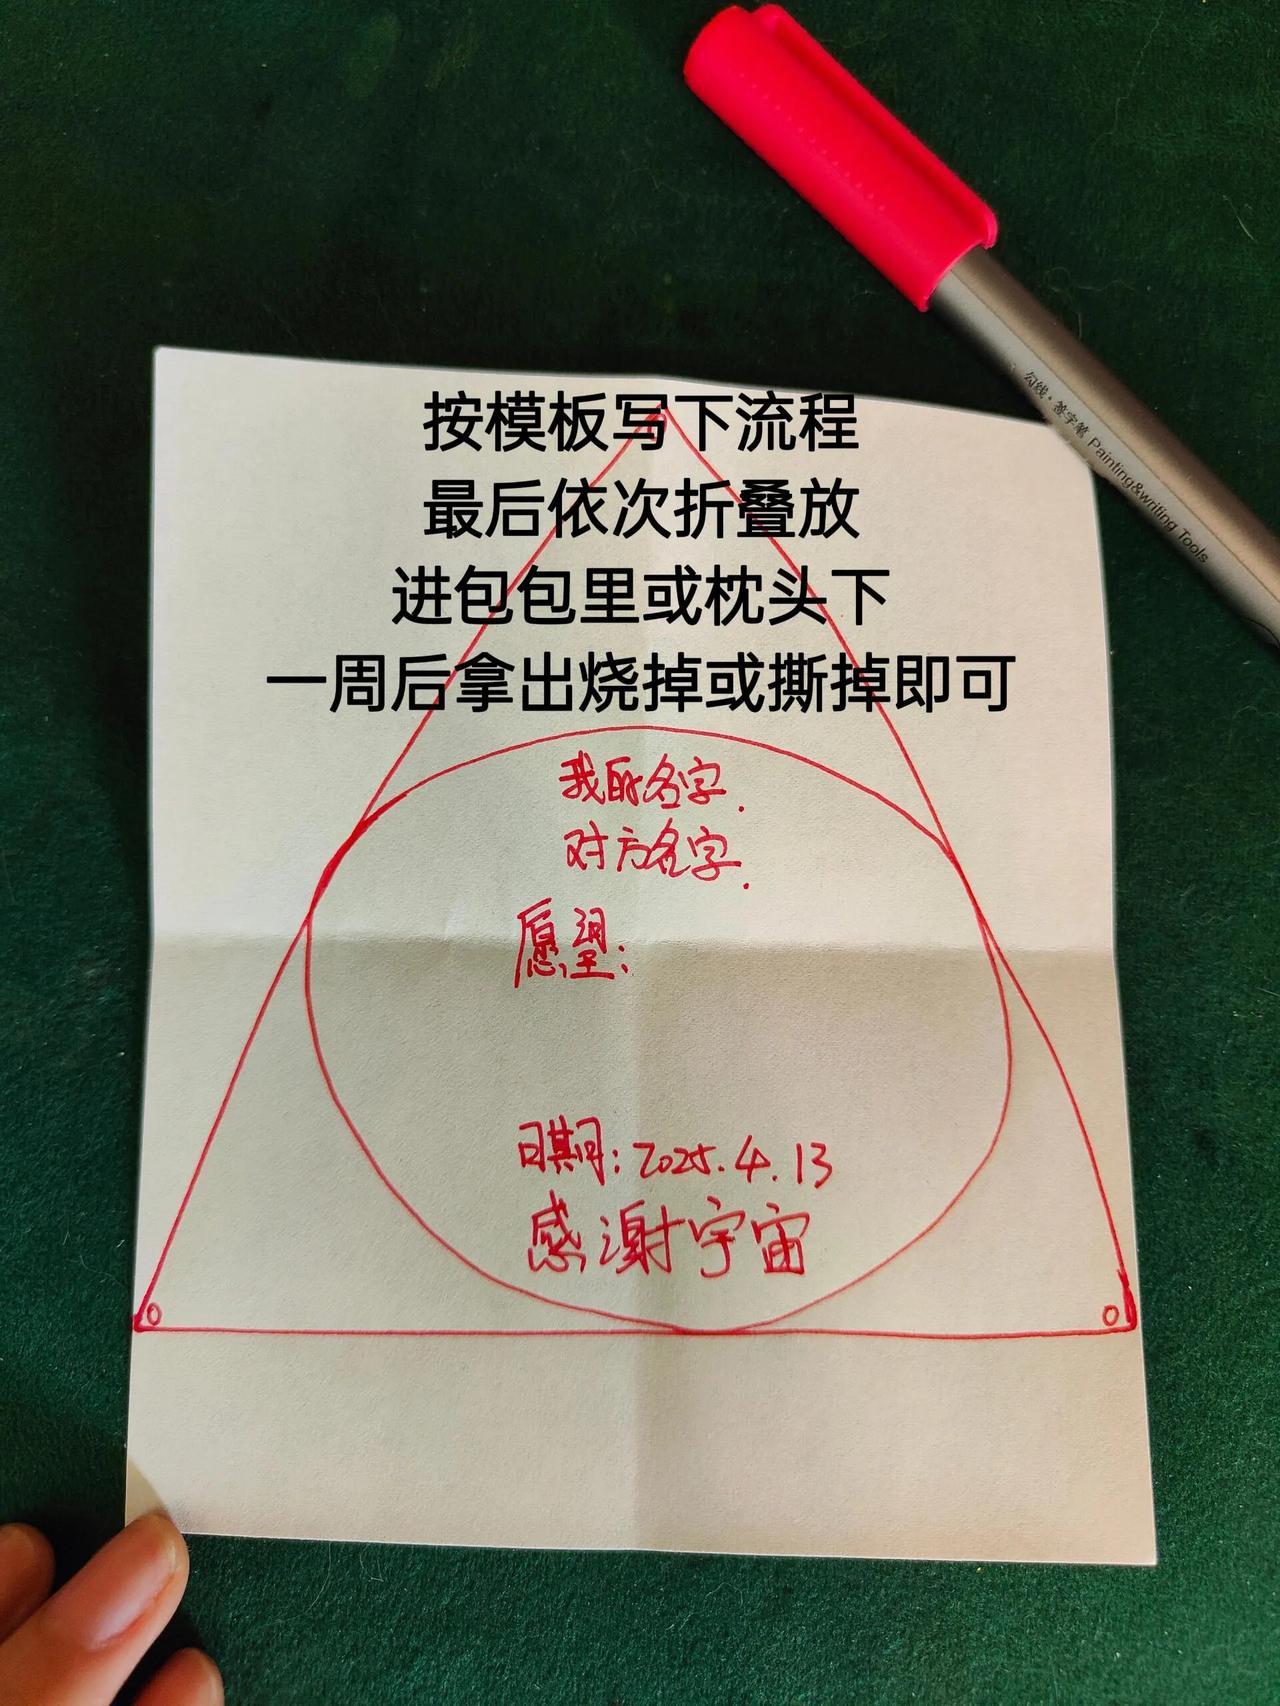 勾线·签字笔 Painting&writing Tools
按模板写下流程
最后依次折叠放
进包包里或枕头下
一周后拿出烧掉或撕掉即可
我的名字.
对方名字.
愿望:
日期: 2025.4.13
感谢宇宙